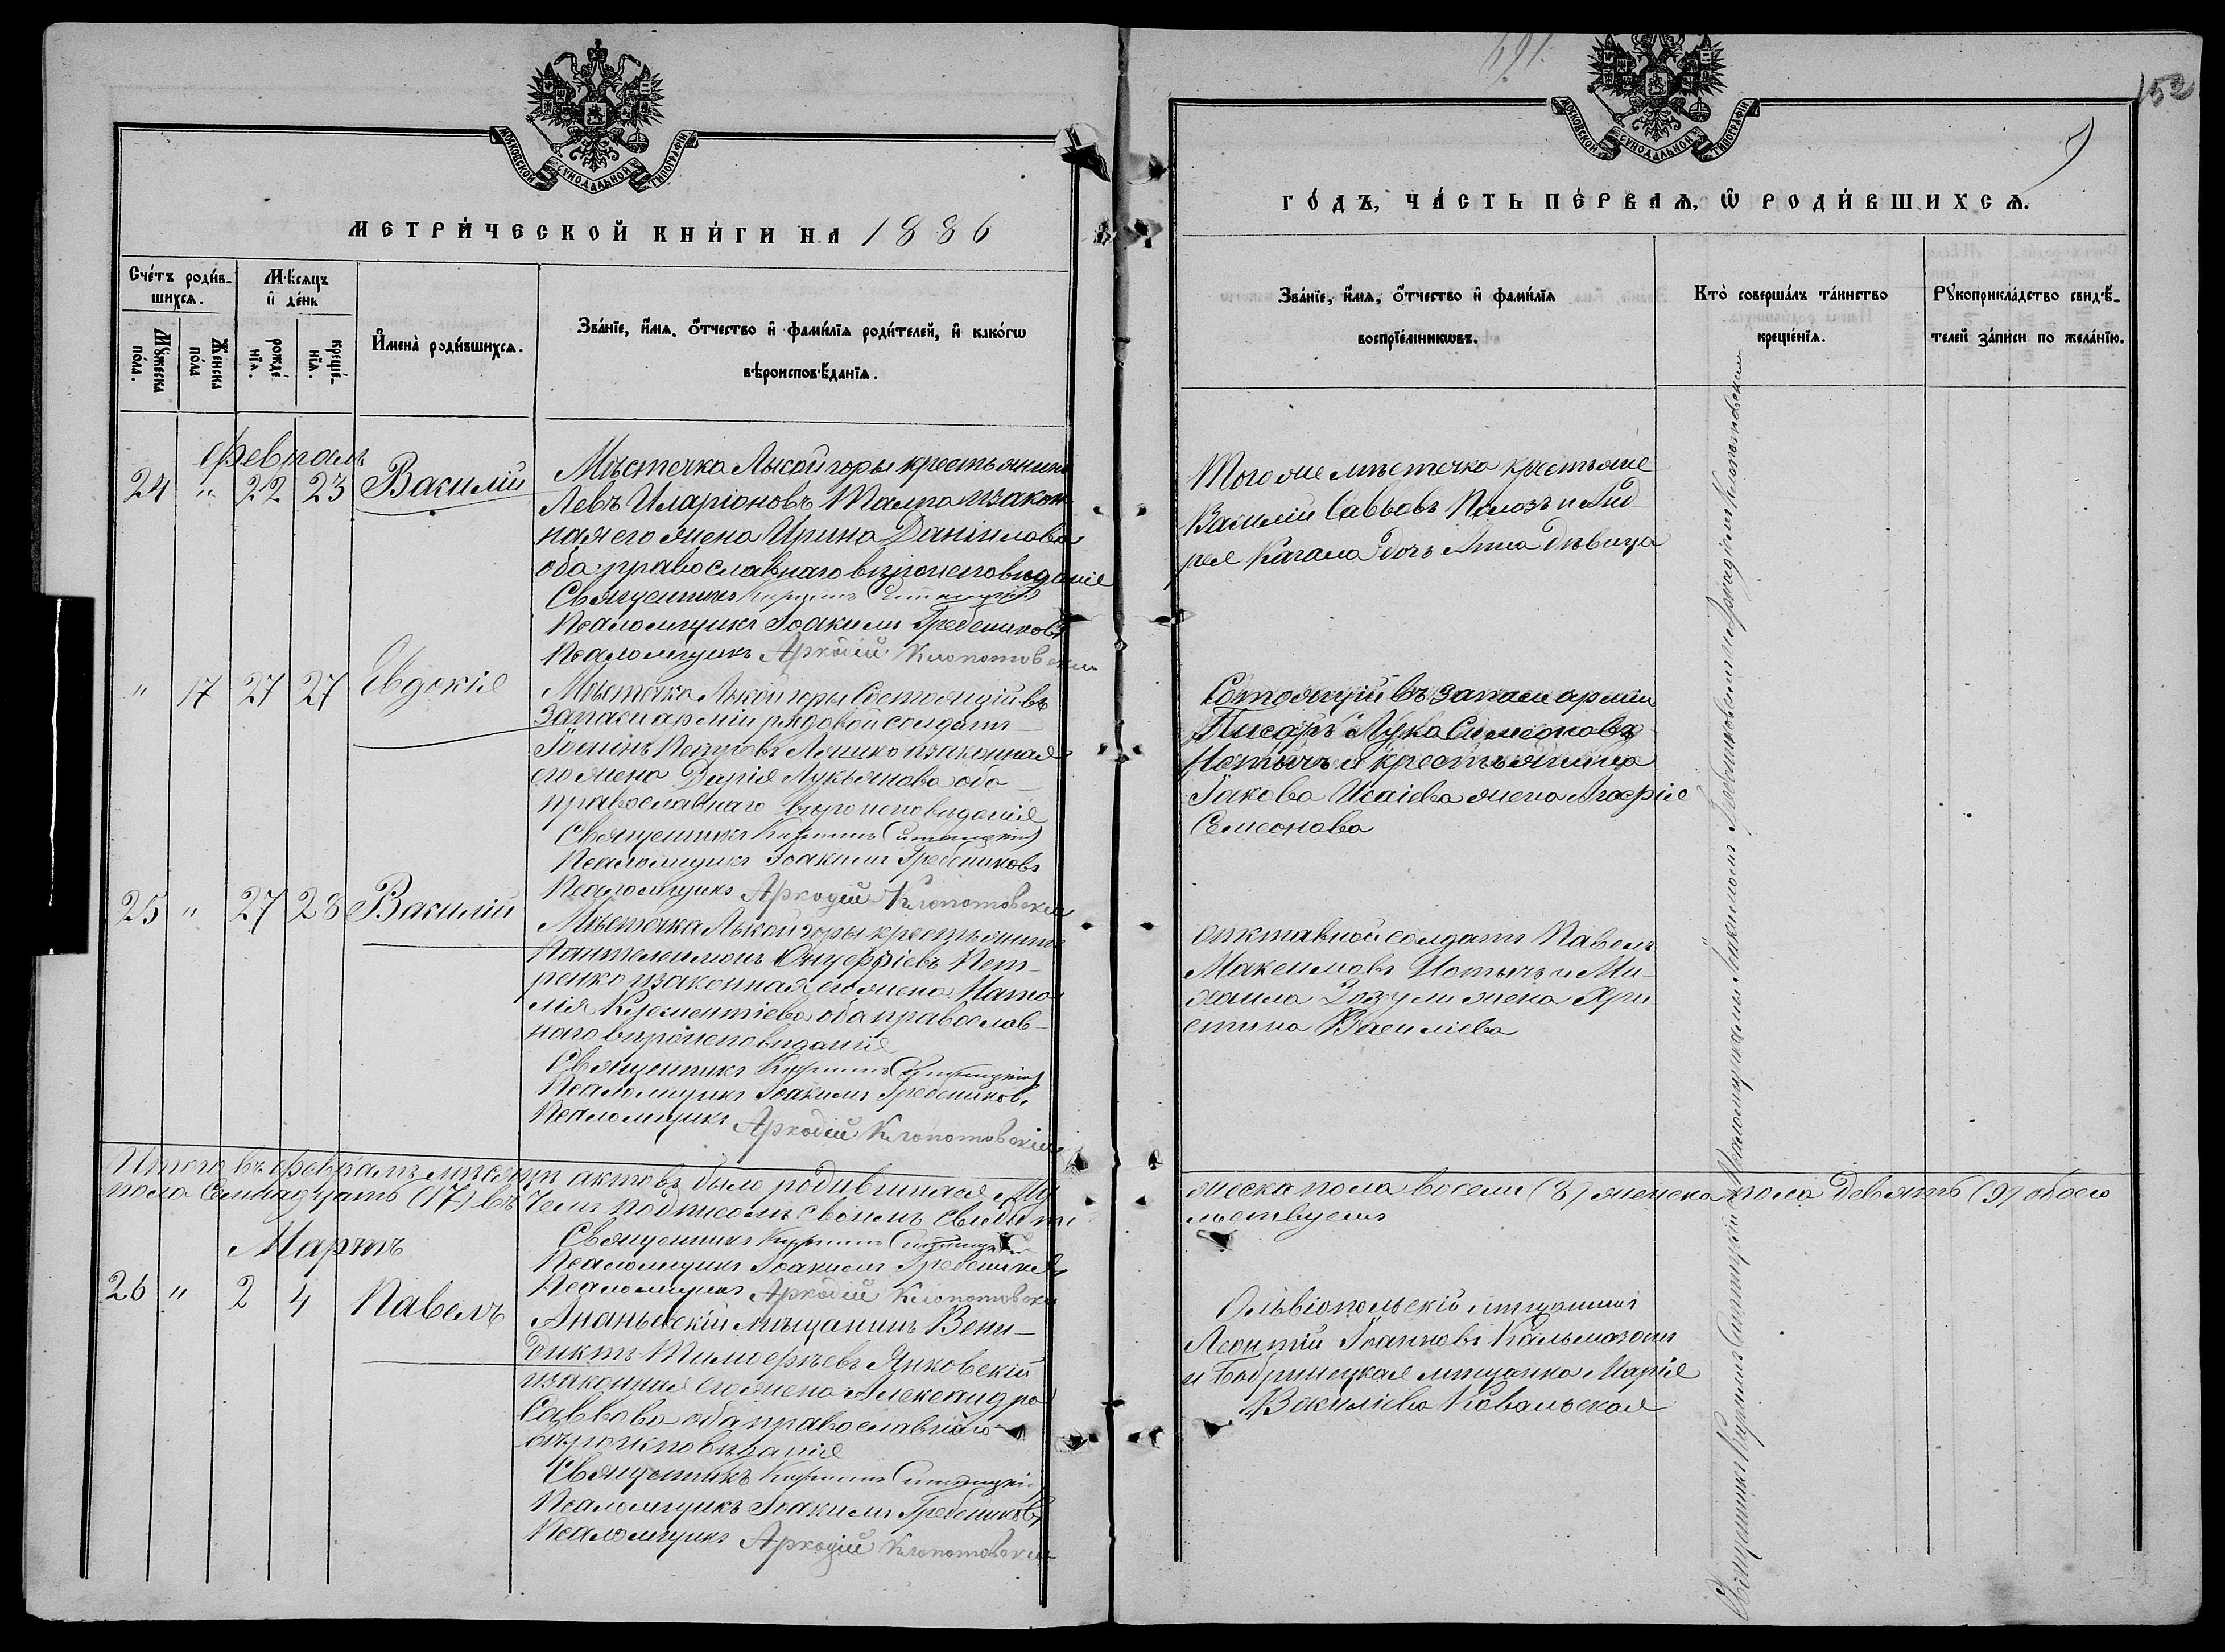 691.
152
9
МОСКОВСКОЙ СѴНОДАЛЬНОЙ ТИПОГРАФІИ
МЕТРИ́ЧЕСКОЙ КНИ́ГИ НА 1886
Сче́тъ роди́в-
шихсѧ.
Мѣсѧцъ
и҆ де́нь
Мꙋ́жеска
по́ла.
Же́нска
по́ла
рожде́
нїѧ.
креще́-
нїѧ.
И҆мена̀ роди́вшихсѧ.
Зва́нїе, и҆́мѧ, ѻ҆́тчество и҆ фами́лїѧ роди́телей, и҆ како́гѡ
вѣроисповѣ́данїѧ.
Февраль
24 " 22 23 Василій
Мѣстечка Лысой горы крестьянинъ
Левъ Иларіоновъ Талпа и закон
ная его жена Ирина Даніилова
оба православнаго вѣроисповѣданіе
Священникъ Кириллъ
Псаломщикъ Іоакимъ Гребениковъ
Псаломщикъ Аркадій Клопотовскій
" 17 27 27 Евдокія
Мѣстечка Лысой горы Состоящій въ
запаси арміи рядовой солдатъ
Петровъ Ляшко и законная
его жена Дарія Лукьянова оба
православнаго вѣроисповѣданія
Священникъ Кириллъ
Псаломщикъ Іоакимъ Гребениковъ
Псаломщикъ Аркадій Клопотовскій
25 " 27 28 Василій
Мѣстечка Лысой горы крестьянинъ
Пантелеимонъ Онуфріевъ Пет-
ренко и законная его жена Ната
лія Климентіева оба православ-
наго вѣроисповѣданія
Священникъ Кириллъ
Псаломщикъ Іоакимъ Гребениковъ
Псаломщикъ Аркадій Клопотовскій
Итого въ февралѣ мѣсяцѣ актовъ было родившихся Му
пола Семнадцать (17) въ чемъ подписомъ своимъ свидѣте
Священникъ Кириллъ
Псаломщикъ Іоакимъ Гребениковъ
Псаломщикъ Аркадій Клопотовскій
Мартъ
26 " 2 4 Павелъ
Ананьевскій мѣщанинъ Вени-
диктъ Тимофѣевъ Янковскій
и законная его жена Александра
Саввова оба православнаго
вѣроисповѣданія
Священникъ Кириллъ
Псаломщикъ Іоакимъ Гребениковъ
Псаломщикъ Аркадій Клопотовскій
МОСКОВСКОЙ СѴНОДАЛЬНОЙ ТИПОГРАФІИ
ГО́ДЪ, ЧА́СТЬ ПЕ́РВАѦ, Ѡ҆ РОДИ́ВШИХСѦ.
Зва́нїе, и҆́мѧ, ѻ҆́тчество и҆ фами́лїѧ
воспрїе́мникѡвъ.
Кто̀ соверша́лъ та́инство
креще́нїѧ.
Рꙋкоприкла́дство свидѣ́-
телей за́писи по жела́нїю.
Того же мѣстечка крестьяне
Василій Саввовъ Полозъ и Анд
рея Качала дочь Анна дѣвица
Состоящій въ запаси арміи
Писарь Лука Симеоновъ
Потычъ и крестьянина
Іакова Исаіева жена Агафія
Семеонова
отставной солдатъ Павелъ
Максимовъ Потычъ и Ми-
хаила Зозули жена Хри
стина Василіева
жеска пола восемь (8) женска пола девять (9) обоего
льствуемъ
Ольвіопольскій мѣщанинъ
Леонтій Іоанновъ Кальмазанъ
и Бобринецкая мѣщанка Марія
Василіева Ковальская
Священникъ Кириллъ съ Псаломщиками Іоакимомъ Гребениковымъ и Аркадіемъ Клопотовскимъ